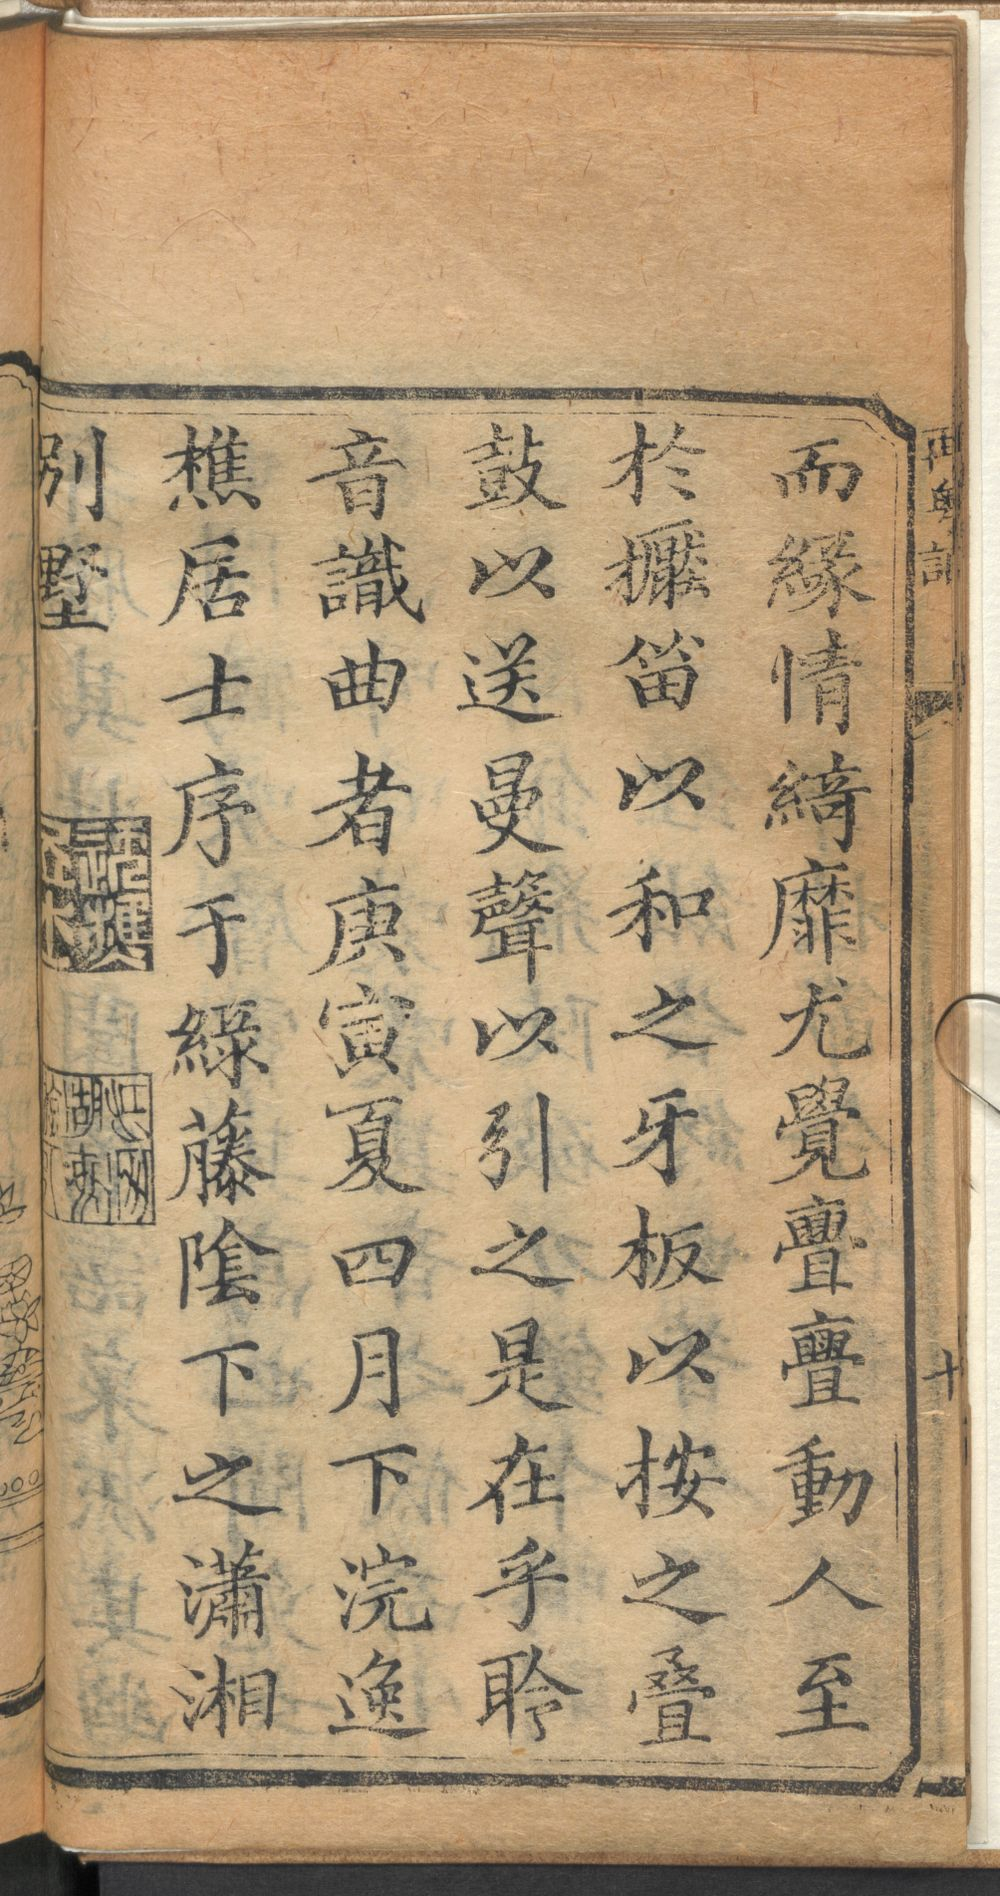 而緣情綺靡尤覺亹亹動人至
於擫笛以和之牙板以按之疊
鼓以送曼聲以引之是在乎聆
音識曲者庚寅夏四月下浣逸
樵居士序于綠藤陰下之瀟湘
別墅
十